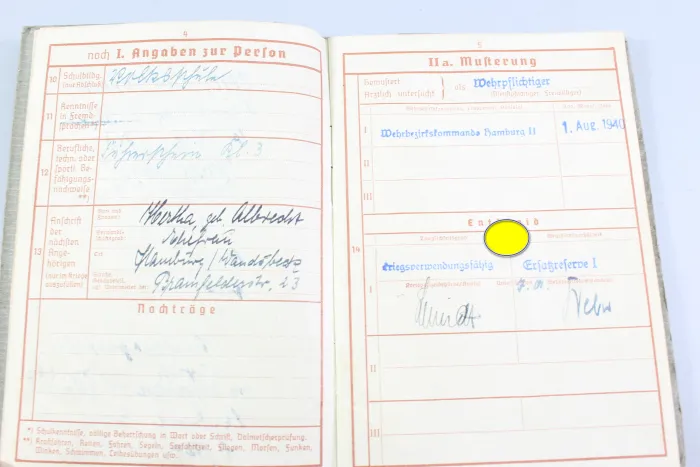 4
noch I. Angaben zur Person
10
Schulbildg.
(nur Abschluß)
Volksschule
11
Kenntnisse
in Fremd-
sprachen *)
12
Berufliche,
techn. oder
sportl. Be-
fähigungs-
nachweise
**)
Führerschein Kl. 3
13
Anschrift
der
nächsten
Ange-
hörigen
Hertha geb. Albrecht
Ehefrau
Hamburg / Wandsbeck
Bramfelderstr. 23
Nachträge
*) Schulkenntnisse, völlige Beherrschung in Wort oder Schrift, Dolmetscherprüfung.
**) Kraftfahren, Reiten, Fahren, Segeln, Seefahrtzeit, Fliegen, Morsen, Funken,
Winken, Schwimmen, Leibesübungen usw.
5
II a. Musterung
Gemustert
Ärztlich untersucht
als Wehrpflichtiger
I
Wehrbezirkskommando Hamburg II
1. Aug. 1940
II
III
Entscheid
14
kriegsverwendungsfähig
Ersatzreserve I
I
II
III